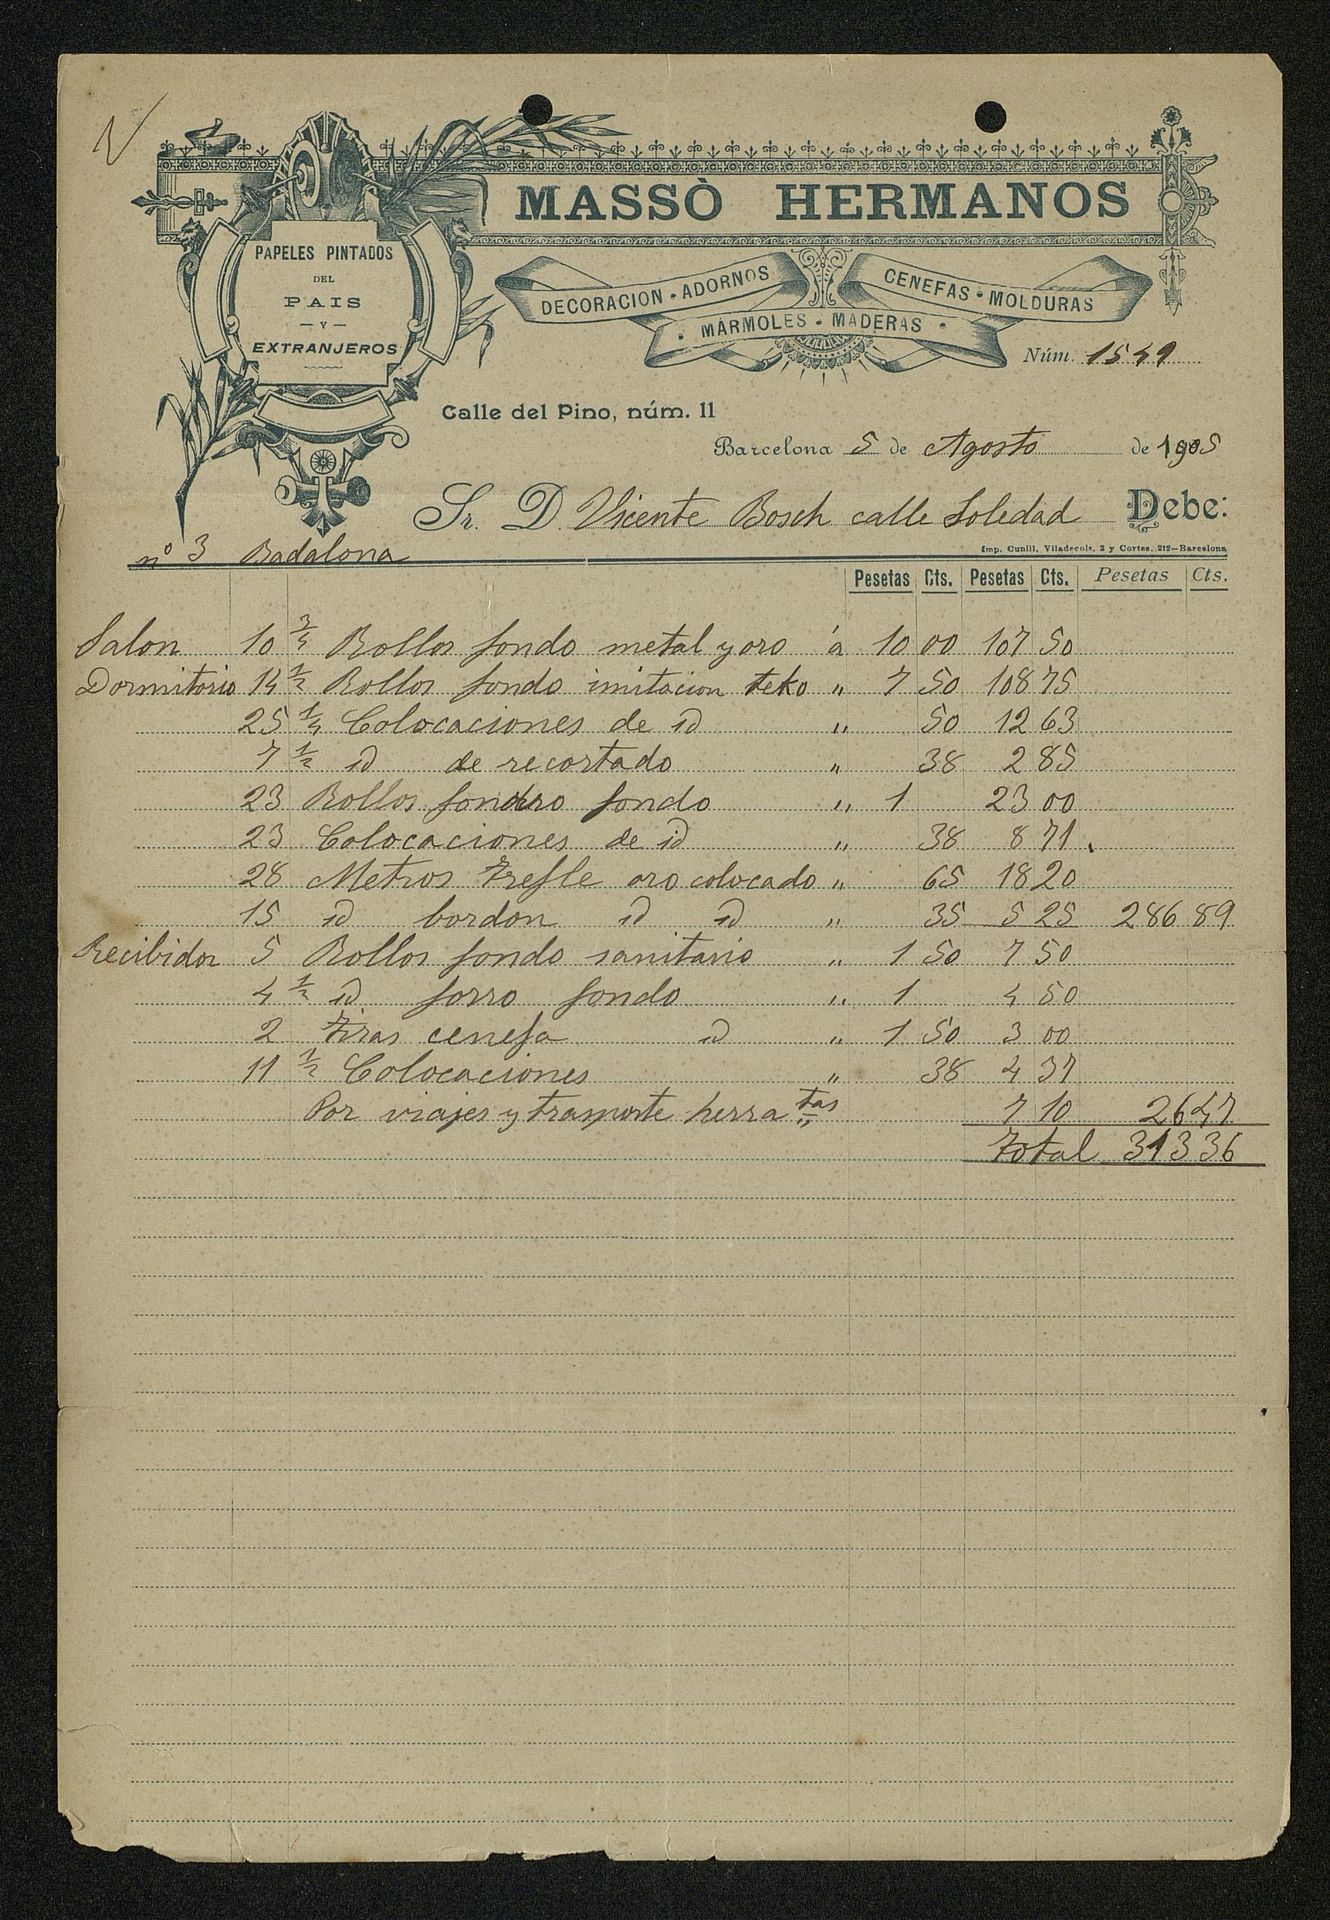 MASSÒ HERMANOS
PAPELES PINTADOS
DEL
PAIS
— Y —
EXTRANJEROS
DECORACION • ADORNOS
CENEFAS • MOLDURAS
• MÁRMOLES • MADERAS •
Núm. 1549
Calle del Pino, núm. 11
Barcelona 5 de Agosto de 1905
Sr. D. Vicente Bosch calle Soledad Debe:
nº 3 Badalona
Imp. Cunill, Viladecols, 3 y Cortes, 212—Barcelona
Pesetas Cts. Pesetas Cts. Pesetas Cts.
Salon 10 3/4 Rollos fondo metal y oro á 10 00 107 50
Dormitorio 14 1/2 Rollos fondo imitacion teko " 7 50 108 75
25 1/4 Colocaciones de id " 50 12 63
7 1/2 id de recortado " 38 2 85
23 Rollos fondo " 1 23 00
23 Colocaciones de id " 38 8 71
28 Metros trefle oro colocado " 65 18 20
15 id bordon id id " 35 5 25 286 89
Recibidor 5 Rollos fondo sanitario " 1 50 7 50
4 1/2 id forro fondo " 1 4 50
2 tiras cenefa id " 1 50 3 00
11 1/2 Colocaciones " 38 4 37
Por viajes y trasporte herratas 7 10 26 47
Total 313 36